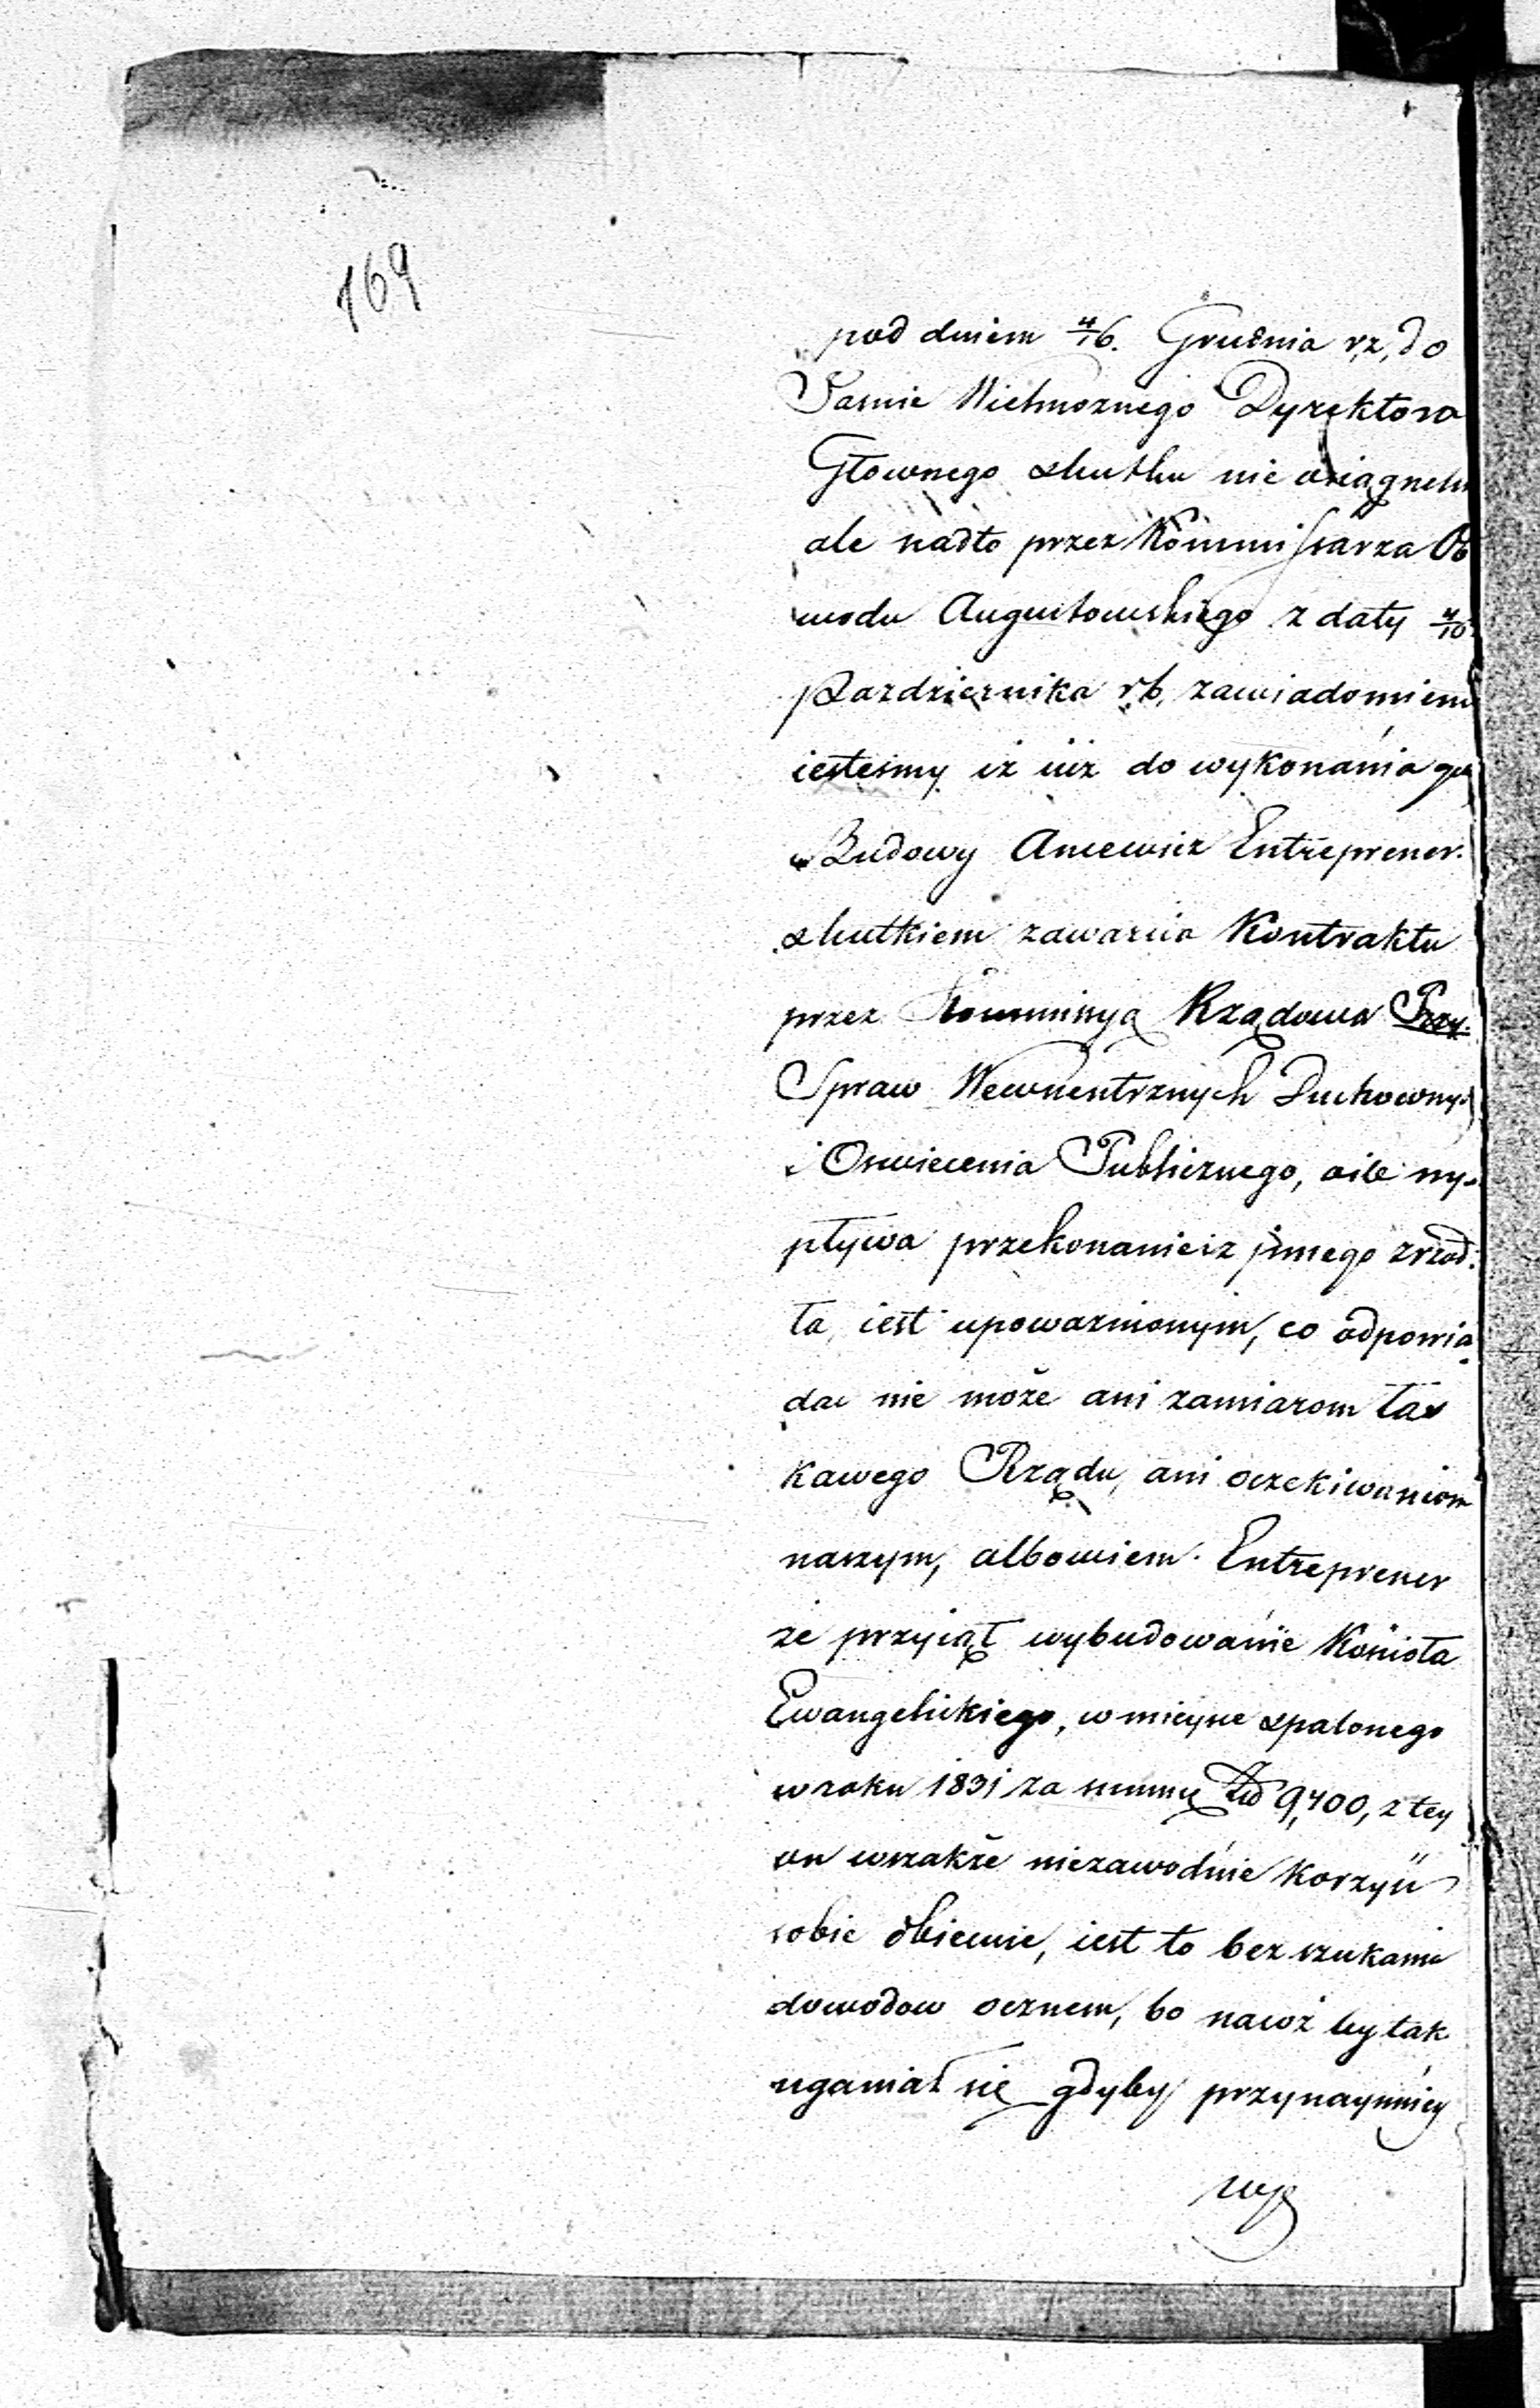 169
pod dniem 4/16. Grudnia r.z, do
Jasnie Wielmoznego Dyrektora
Głownego skutku nie osiągneły
ale nadto przez Kommissarza Ob
wodu Augustowskiego z daty 4/16
Pazdziernika r.b, zawiadomieni
iestesmy iż iuż do wykonania
Budowy Ancewicz Entreprener.
skutkiem zawarcia Kontraktu
przez Kommisyą Rządowa Przy.
Spraw Wewnentrznych Duchownych
i Oswiecenia Publicznego, aile wy-
pływa przekonanie iz innego zrzod.
ła, iest upowaznionym, co odpowia
dac nie może ani zamiarom Łas
kawego Rządu, ani oczekiwaniom
naszym, albowiem Entreprener
że przyiął wybudowanie Kościoła
Ewangelickiego, w mieysce spalonego
w roku 1831 za summę Złd 9,400, z tey
on wszakże niezawodnie Korzyść
sobie obiecuie, iest to bez szukania
dowodow ocznem, bo nawet by tak
uganiał się gdyby przynaymniey